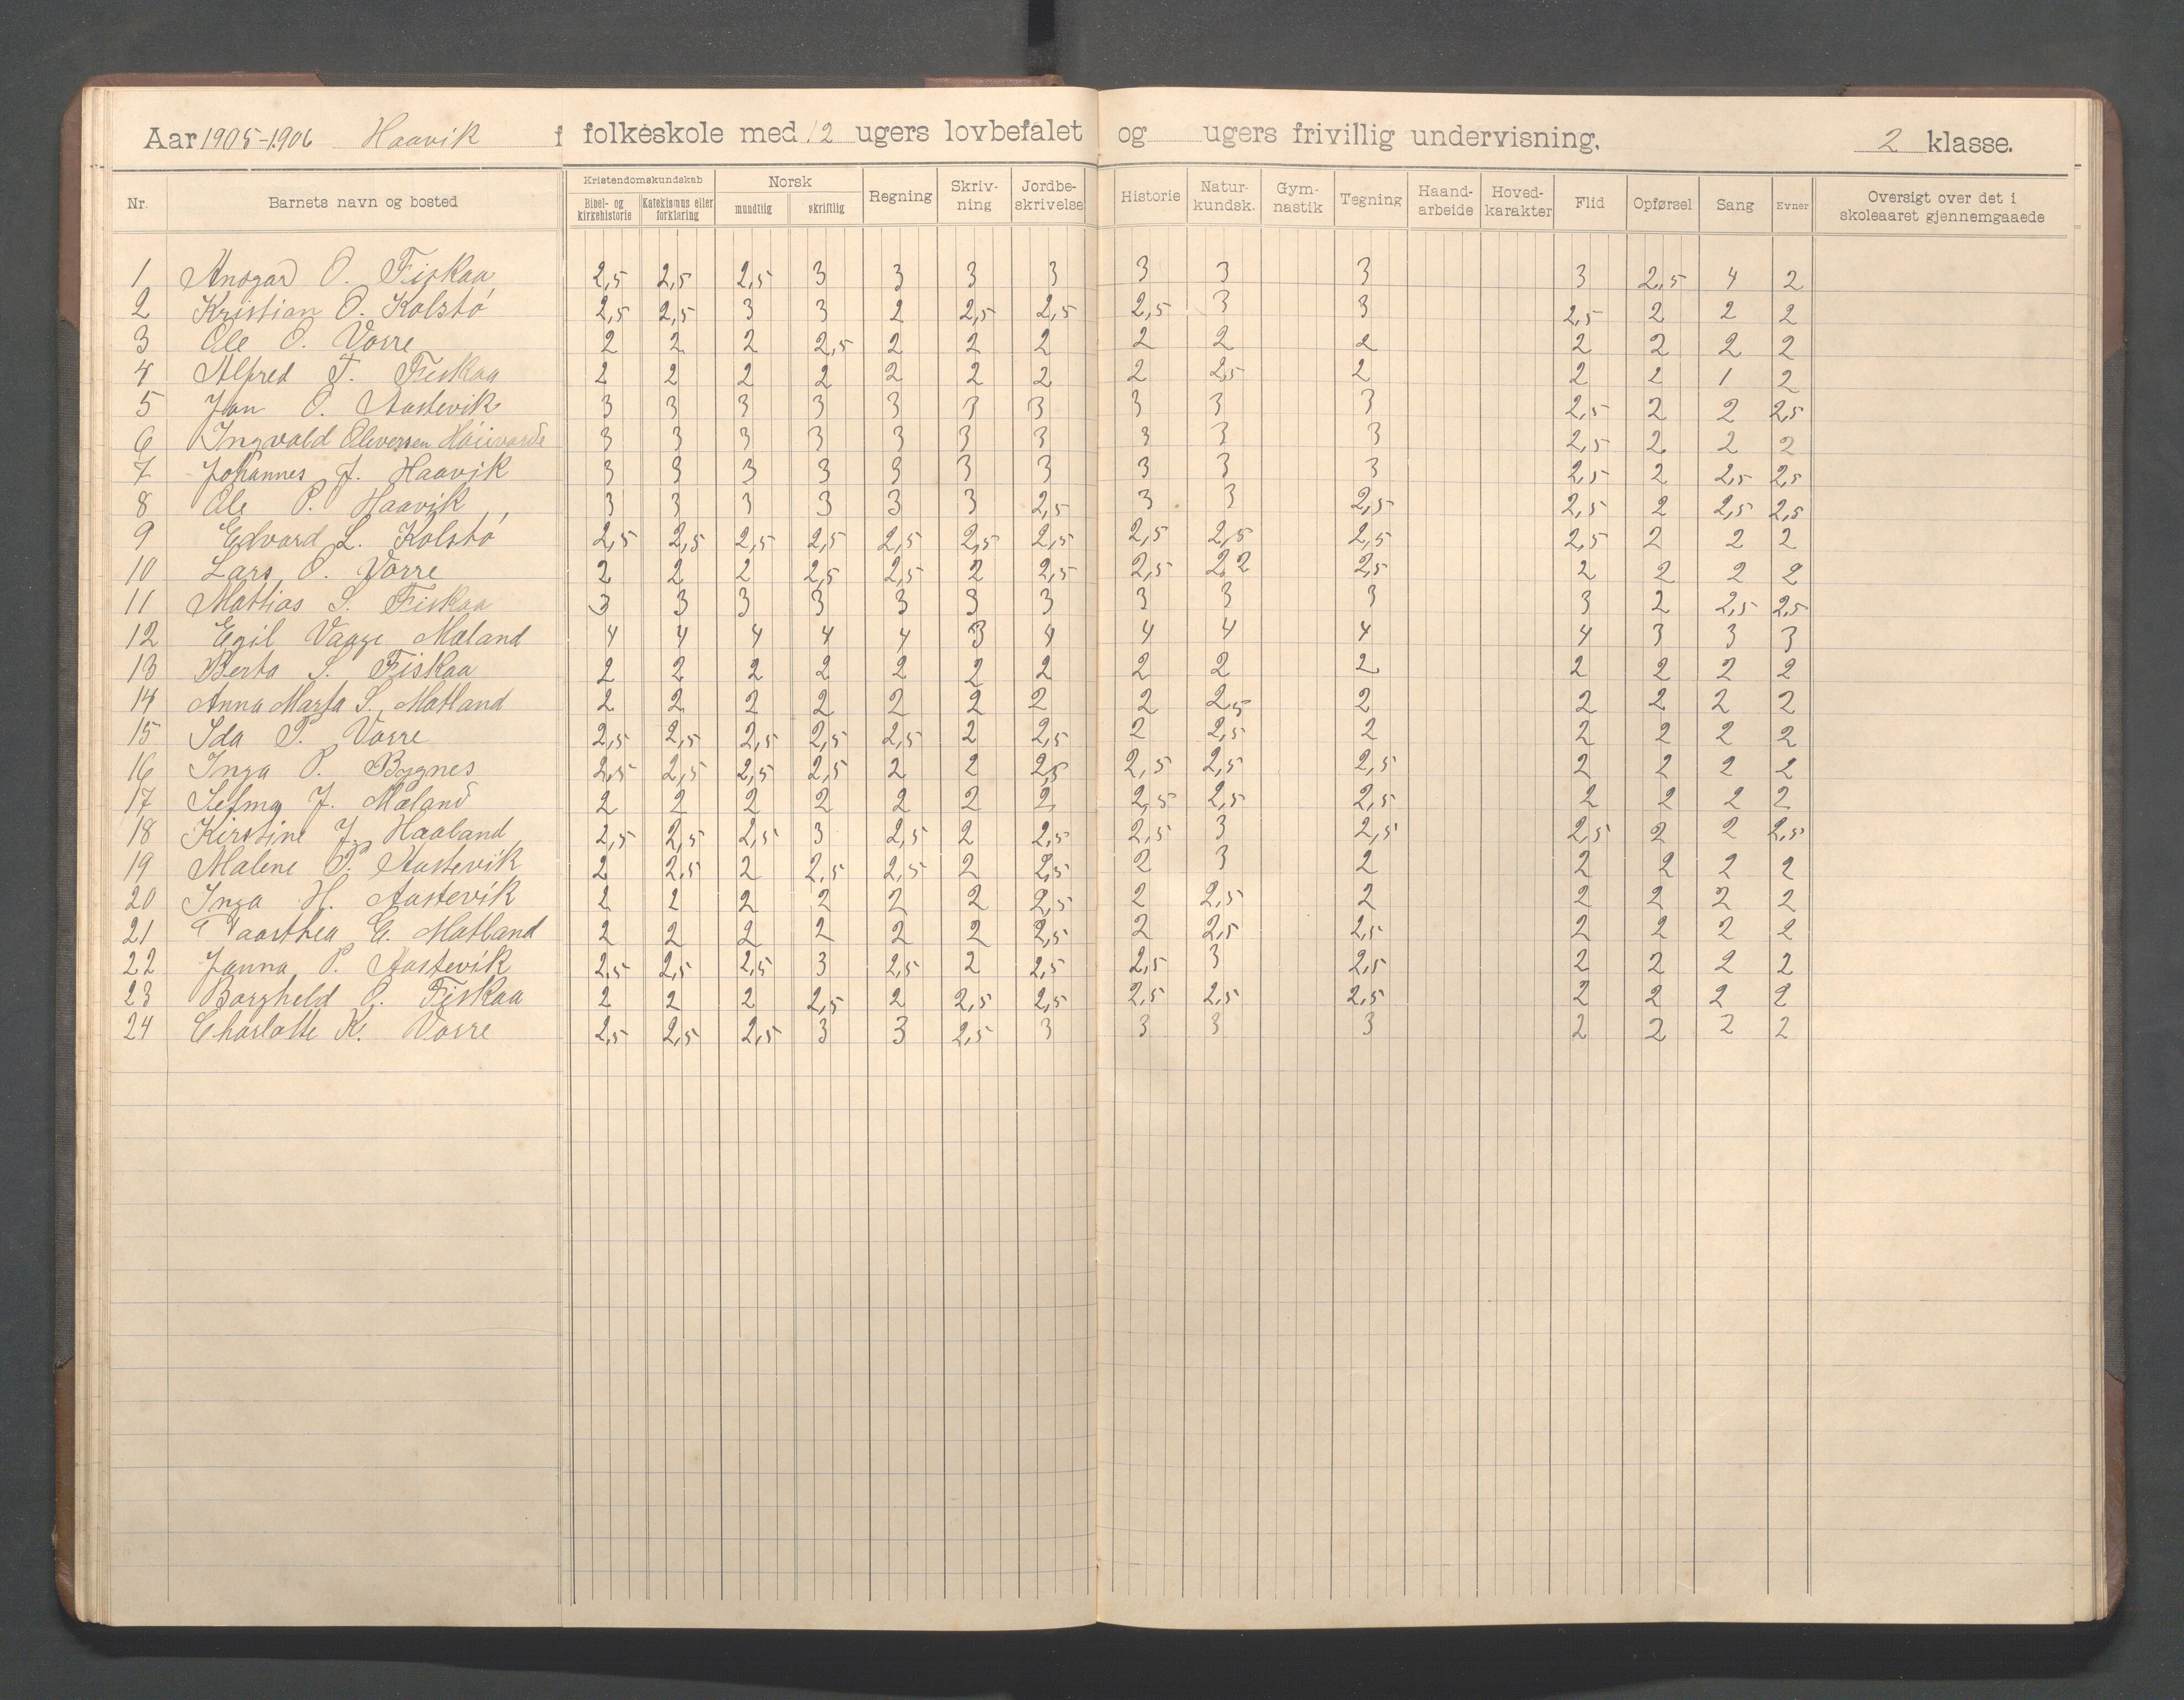 Aar 1905-1906 Haavik f folkeskole med 12 ugers lovbefalet og ugers frivillig undervisning. 2 klasse.
Nr. Barnets navn og bosted Kristendomskundskab Bibel- og kirkehistorie Katekismus eller forklaring Norsk mundtlig skriftlig Regning Skriv-ning Jordbe-skrivelse Historie Natur-kundsk. Gym-nastik Tegning Haand-arbeide Hoved-karakter Flid Opførsel Sang Evner Oversigt over det i skoleaaret gjennemgaaede
1 Ansgar O. Fiskaa 2,5 2,5 2,5 3 3 3 3 3 3 3 3 2,5 4 2
2 Kristian O. Kolstö 2,5 2,5 3 3 2 2,5 2,5 2,5 3 3 2,5 2 2 2
3 Ole O. Vorre 2 2 2 2,5 2 2 2 2 2 2 2 2 2 2
4 Alfred T. Fiskaa 2 2 2 2 2 2 2 2 2,5 2 2 2 1 2
5 Jan O. Aastevik 3 3 3 3 3 3 3 3 3 3 2,5 2 2 2,5
6 Ingvald Oliversen 3 3 3 3 3 3 3 3 3 3 2,5 2 2 2
7 Johannes J. Haavik 3 3 3 3 3 3 3 3 3 3 2,5 2 2,5 2,5
8 Ole P. Haavik 3 3 3 3 3 3 2,5 3 3 2,5 2,5 2 2,5 2,5
9 Edvard L. Kolstö 2,5 2,5 2,5 2,5 2,5 2,5 2,5 2,5 2,5 2,5 2,5 2 2 2
10 Lars O. Vorre 2 2 2 2,5 2,5 2 2,5 2,5 2,2 2,5 2 2 2 2
11 Mattias S. Fiskaa 3 3 3 3 3 3 3 3 3 3 3 2 2,5 2,5
12 Egil Vaage Mæland 4 4 4 4 4 3 4 4 4 4 4 3 3 3
13 Berta S. Fiskaa 2 2 2 2 2 2 2 2 2 2 2 2 2 2
14 Anna Marta S. Matland 2 2 2 2 2 2 2 2 2,5 2 2 2 2 2
15 Ida P. Vorre 2,5 2,5 2,5 2,5 2,5 2 2,5 2 2,5 2 2 2 2 2
16 Inga P. Bygnes 2,5 2,5 2,5 2,5 2 2 2,5 2,5 2,5 2,5 2 2 2 2
17 Selma J. Mæland 2 2 2 2 2 2 2 2,5 2,5 2,5 2 2 2 2
18 Kirstine J. Haaland 2,5 2,5 2,5 3 2,5 2 2,5 2,5 3 2,5 2,5 2 2 2,5
19 Malene P. Aastevik 2 2,5 2 2,5 2,5 2 2,5 2 3 2 2 2 2 2
20 Inga H. Aastevik 2 2 2 2 2 2 2,5 2 2,5 2 2 2 2 2
21 G. Matland 2 2 2 2 2 2 2,5 2 2,5 2,5 2 2 2 2
22 Janna P. Aastevik 2,5 2,5 2,5 3 2,5 2 2,5 2,5 3 2,5 2 2 2 2
23 Borghild O. Fiskaa 2 2 2 2,5 2 2,5 2,5 2,5 2,5 2,5 2 2 2 2
24 Charlotte K. Vorre 2,5 2,5 2,5 3 3 2,5 3 3 3 3 2 2 2 2